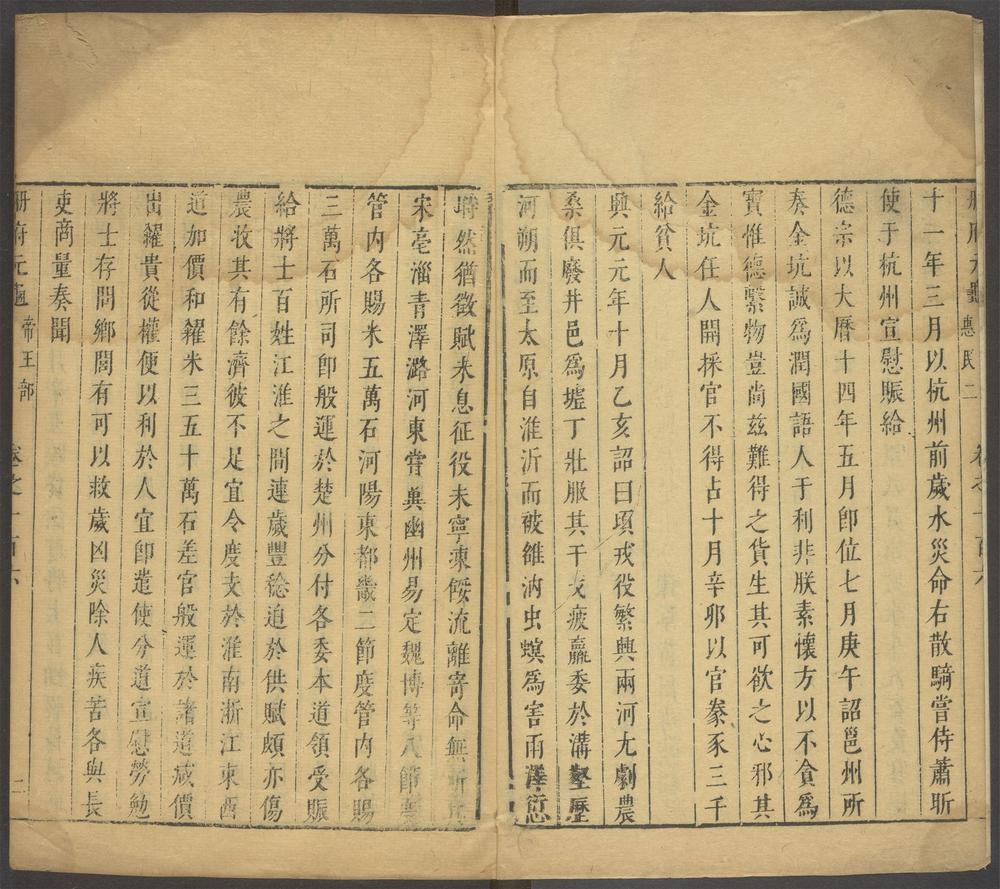 冊府元龜 惠民二 卷之一百六
十一年三月以杭州前歲水災命右散騎嘗侍蕭昕
使于杭州宣慰賑給
德宗以大曆十四年五月卽位七月庚午詔邕州所
奏金坑誠爲潤國語人于利非朕素懷方以不貪爲
寶惟德繫物豈尚茲難得之貨生其可欲之心邪其
金坑任人開採官不得占十月辛邜以官豢豕三千
給貧人
興元元年十月乙亥詔曰頃戎役繁興兩河尢劇農
桑俱廢井邑爲墟丁壯服其干戈疲羸委於溝壑歷
河朔而至太原自淮沂而被雒汭虫螟爲害雨澤愆
時然猶徵賦未息征役未寧凍餒流離寄命無所其
宋亳淄青澤潞河東嘗兾幽州易定魏博等八節度
管內各賜米五萬石河陽東都畿二節度管內各賜
三萬石所司卽般運於楚州分付各委本道領受賑
給將士百姓江淮之間連歲豐稔迫於供賦頗亦傷
農收其有餘濟彼不足宜令度支於淮南浙江東西
道加價和糴米三五十萬石差官般運於諸道减價
出糶貴從權便以利於人宜卽遣使分道宣慰勞勉
將士存問鄉閭有可以救歲凶災除人疾苦各與長
吏商量奏聞
冊府元龜 帝王部 卷之一百六 二